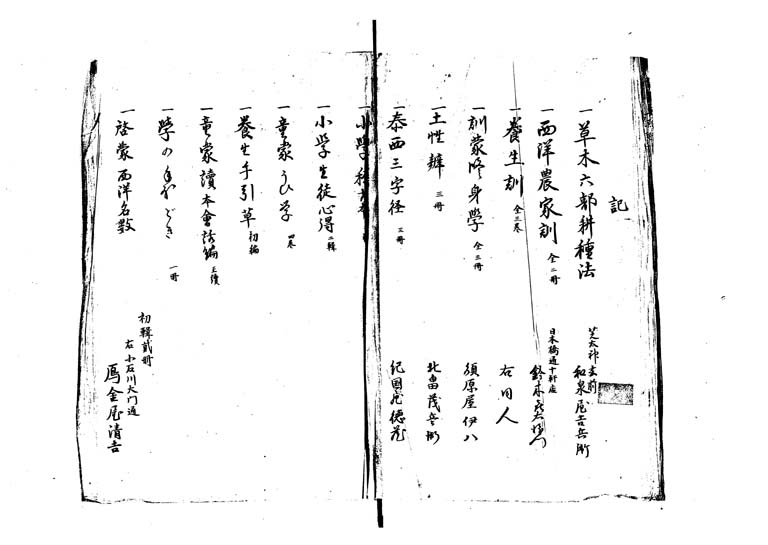 記
一 草木六部耕種法
芝太神宮前 和泉屋吉兵衛
一 西洋農家訓 全二冊
日本橋通十軒店 鈴木
一 養生訓 全三巻
右同人
一 訓蒙修身學 全三冊
須原屋伊八
一 土性辨 三冊
北畠茂兵衛
一 泰西三字経 三冊
紀國屋徳蔵
一 小學
一 小学生徒心得 二輯
一 童蒙うひ学 四巻
一 養生手引草 初編
一 童蒙讀本會話編 正續
一 學の 一冊
一 啓蒙西洋名数
初輯貳冊
右小石川大門通
鴈金屋清吉